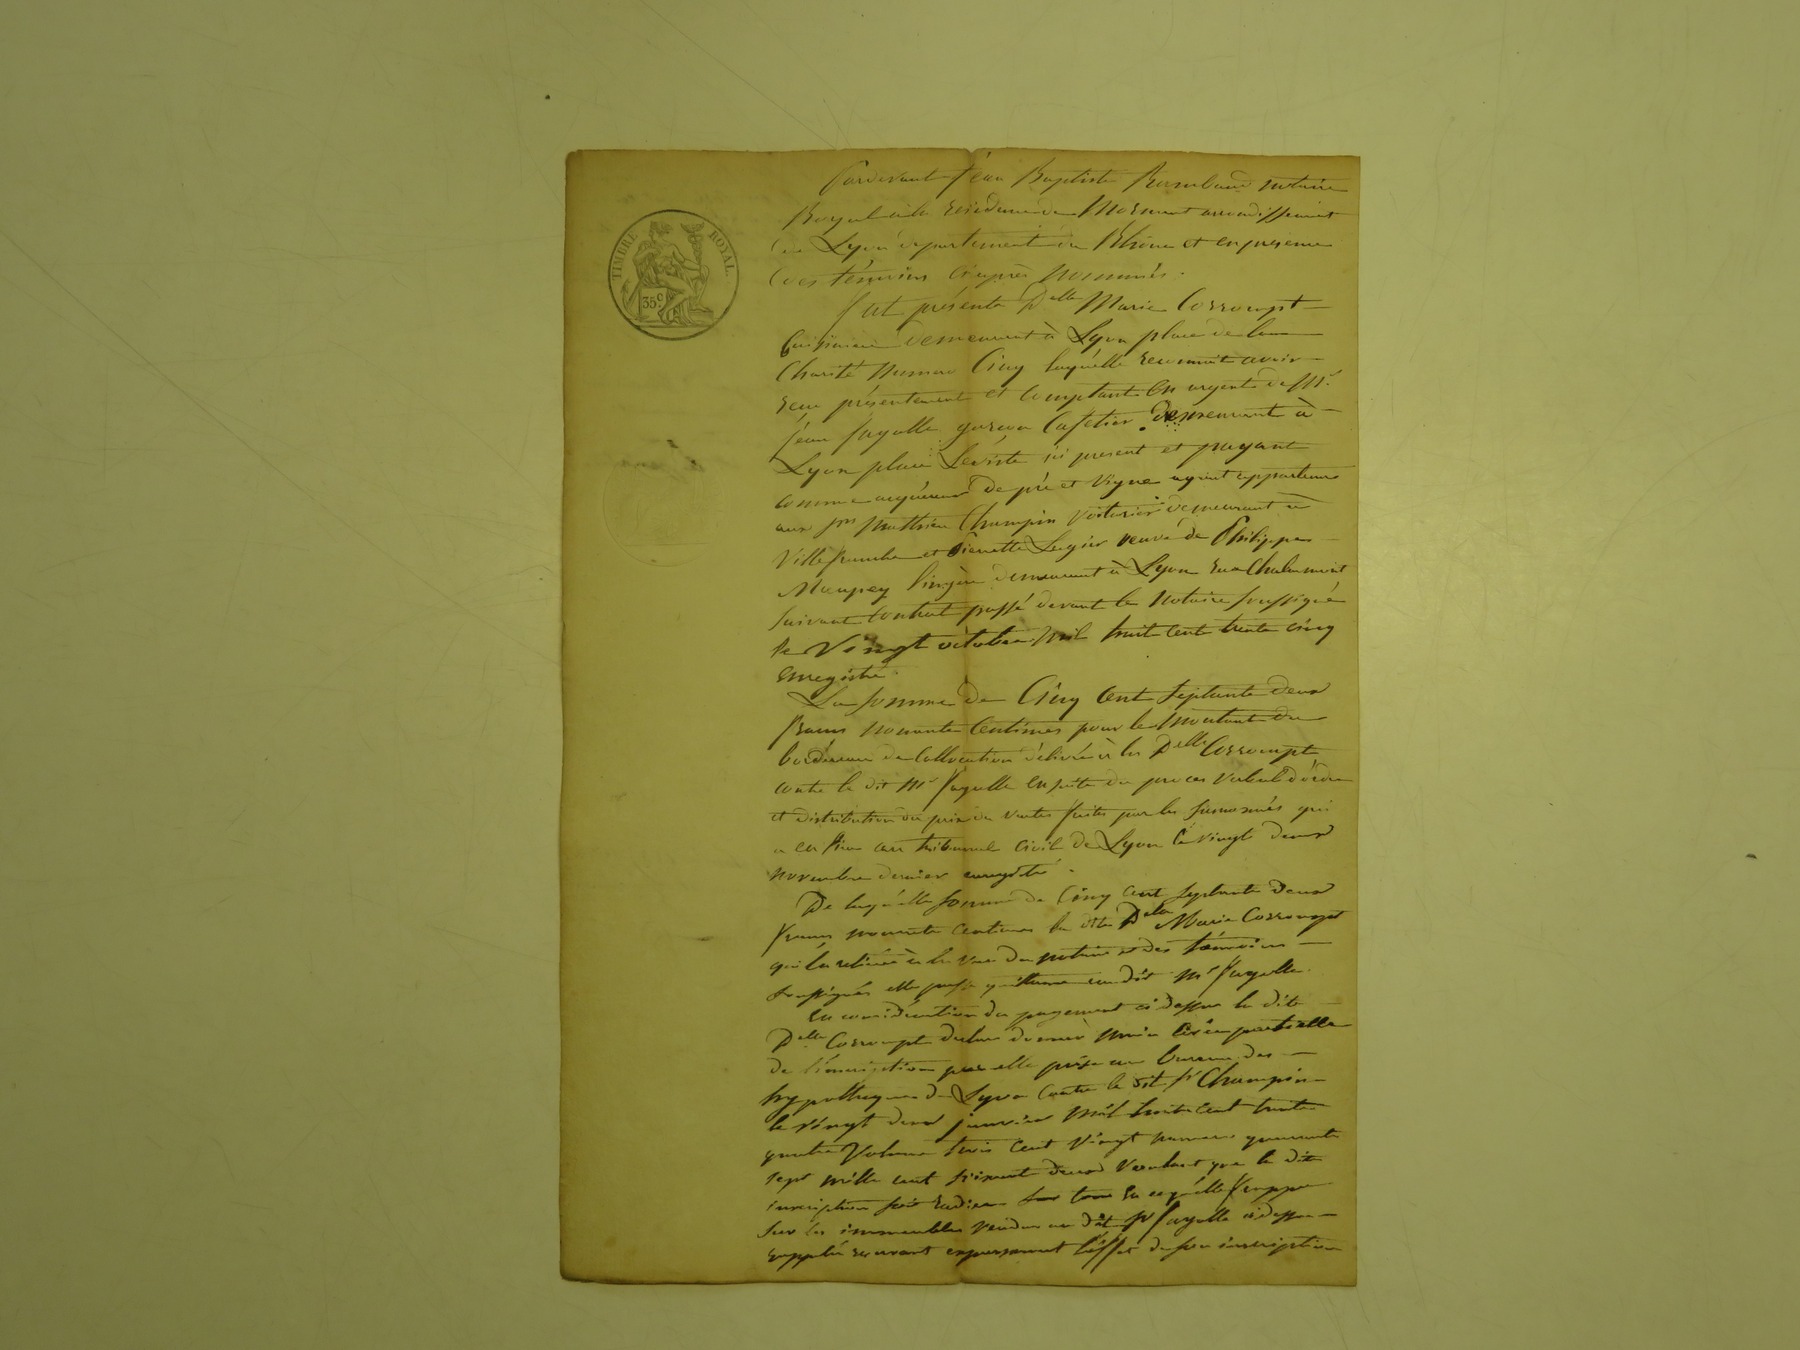 TIMBRE ROYAL.
35 c.
Pardevant Jean Baptiste Rambaud notaire
Royal à la résidence de Mornant arrondissement
de Lyon département du Rhône et en présence
des témoins ci après nommés.
fut présente Delle Marie Corrompt
Cuisinière demeurant à Lyon place de la
Charité numero Cinq laquelle reconnait avoir
recu présentement et comptant en argent de Mr
Jean fayolle garcon Cafetier demeurant à
Lyon place Léviste ici présent et payant
comme acquéreur de pré et vigne ayant appartenu
aux srs Mathieu Champin voiturier demeurant à
Villefranche et Pierrette Logier veuve de Philippe
Maupey lingère demeurant à Lyon rue Chalamont
suivant contrat passé devant le notaire soussigné
le Vingt octobre mil huit cent trente cinq
enregistré.
La somme de Cinq Cent septante deux
francs nonante Centimes pour le montant du
bordereau de Collocation délivré à la Delle Corrompt
contre le dit Mr fayolle en suite du proces verbal d'ordre
et distribution du prix de ventes faites par les susnomés qui
a eu lieu au tribunal Civil de Lyon le vingt deux
novembre dernier enregistré.
De laquelle somme de Cinq Cent septante deux
francs nonante centimes la dite Delle Marie Corrompt
qui la retirée à la vue du notaire et des témoins
soussignés elle passe quittance au dit Mr fayolle.
En considération du payement ci dessus la dite
Delle Corrompt declare donner main levée partielle
de l'inscription par elle prise au bureau des
hypothèques de Lyon contre le dit sr Champin
le vingt deux janvier mil huit cent trente
quatre Volume trois cent vingt numero quarante
sept mille cent soixante deux voulant que la dite
inscription soit radiée en ce qu'elle frappe
sur les immeubles vendus au dit sr fayolle ci dessus
rappelés reservant expressement l'effet de son inscription